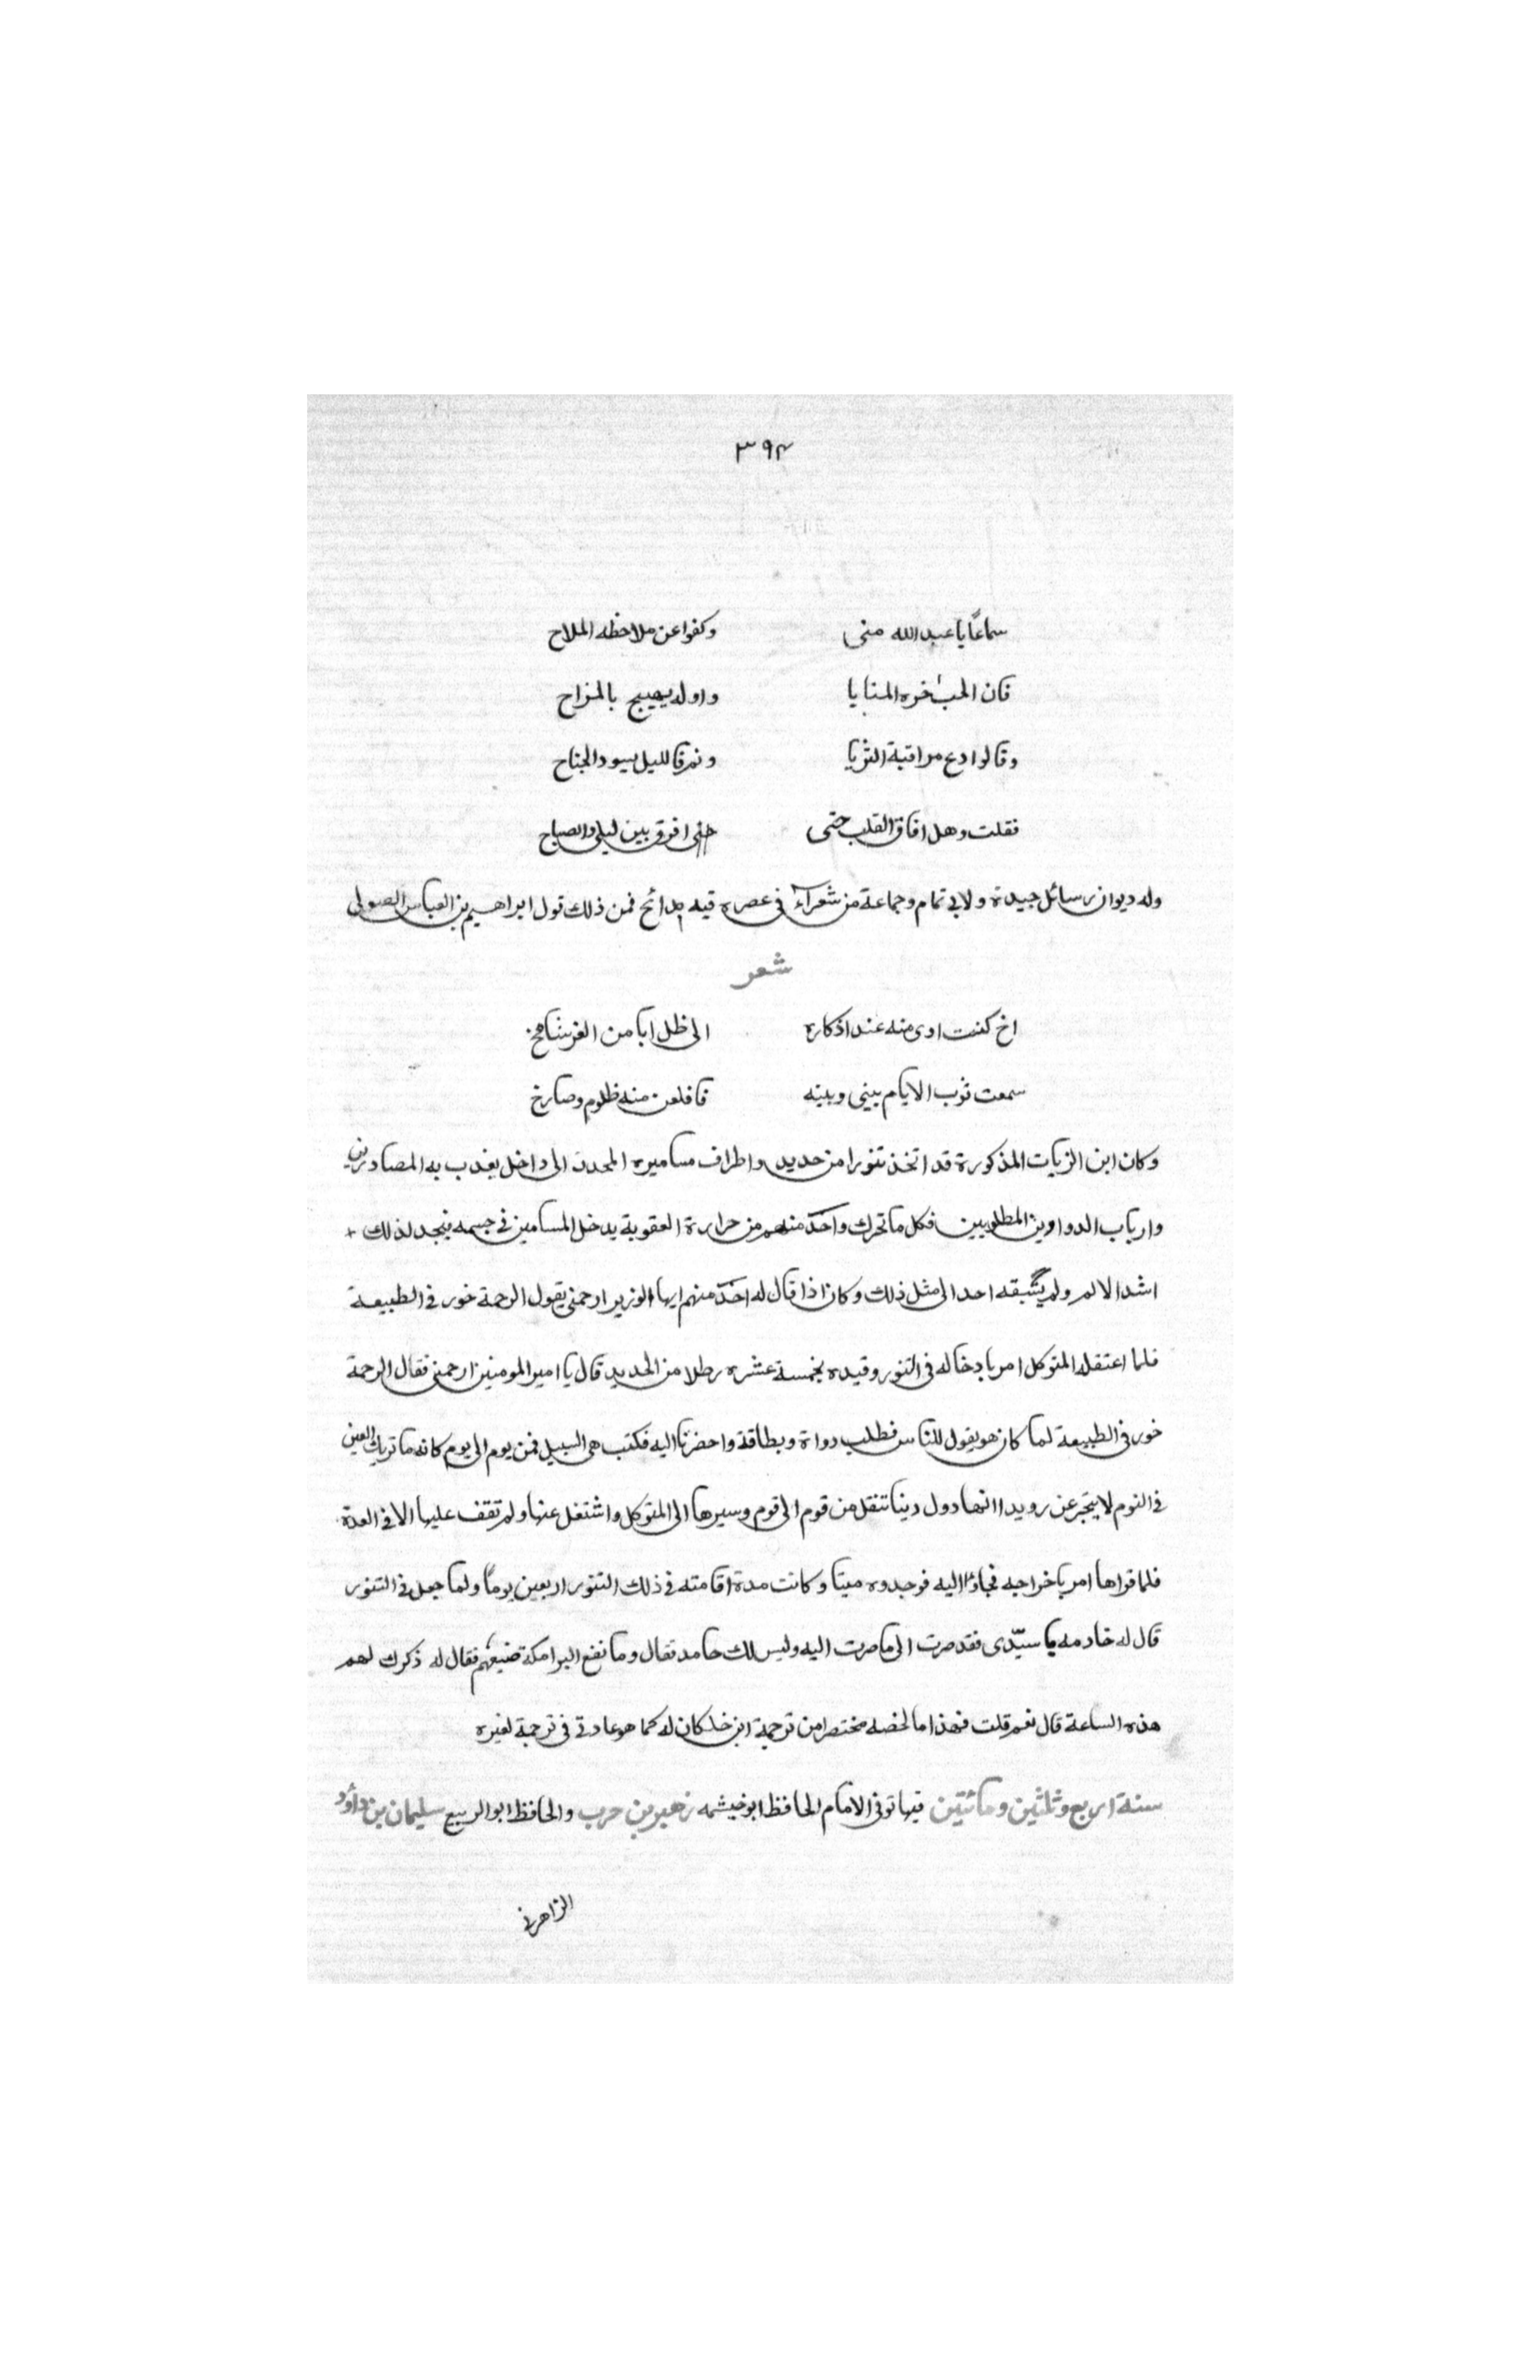 ٣٩٤
سماعًا يا عبد الله منى وكفوا عن ملاحظه الملاح
فان الحب اخره المنايا واوله يهيج بالمزاح
وقالوا دع مراقبة الثريا ونم فالليل يسود الجناح
فقلت وهل افاق القلب حتى افرق بين ليلى والصباح
وله ديوان رسائل جيدة ولابي تمام وجماعة من شعرآء في عصره فيه مدائح فمن ذلك قول ابراهيم بن العباس الصولي
شعر
اخ كنت اوى منه عند اذكاره الى ظل ابا من العز شامخ
سمعت نوب الايام بيني وبينه فاقلعن منه ظلوم وصارخ
وكان ابن الزيات المذكورة قد اتخذ تنورا من حديد واطراف مساميره المحدد الى داخل يعذب به المصادرين
وارباب الدواوين المطلوبين فكل ما تحرك واحد منهم من حرارة العقوبة يدخل المسامين في جسمه فيجد لذلك
اشد الالم ولم يسبقه احد الى مثل ذلك وكان اذا قال له احد منهم ايها الوزير ارحمني يقول الرحمة خور في الطبيعة
فلما اعتقله المتوكل امر بادخاله في التنور وقيده بخمسة عشره رطلا من الحديد قال يا امير المومنين ارحمني فقال الرحمة
خور في الطبيعة لما كان هو يقول للناس فطلب دواة وبطاقة واحضرتا اليه فكتب هي السبيل فمن يوم الى يوم كانه ما تريك العين
في النوم لا يتجزعن رويدا انها دول دينا تنقل من قوم الى قوم وسيرها الى المتوكل واشتغل عنها ولم تقف عليها الا في العدة
فلما قراها امر باخراجه فجاؤا اليه فوجدوه ميتا وكانت مدة اقامته في ذلك التنور اربعين يومًا ولما جعل في التنور
قال له خادمه يا سيّدى فقد صرت الى ما صرت اليه وليس لك حامد فقال وما نفع البرامكة صنيعهم فقال له ذكرك لهم
هذه الساعة قال نعم قلت فهذا ما لخصه مختصرا من ترجمة ابن خلكان له كما هو عادتي في ترجمة لغيره
سنة اربع وثلثين ومائتين فيها توفى الامام الحافظ ابو خيشمه زهير بن حرب والحافظ ابو الربيع سليمان بن داؤد
الزاهرني